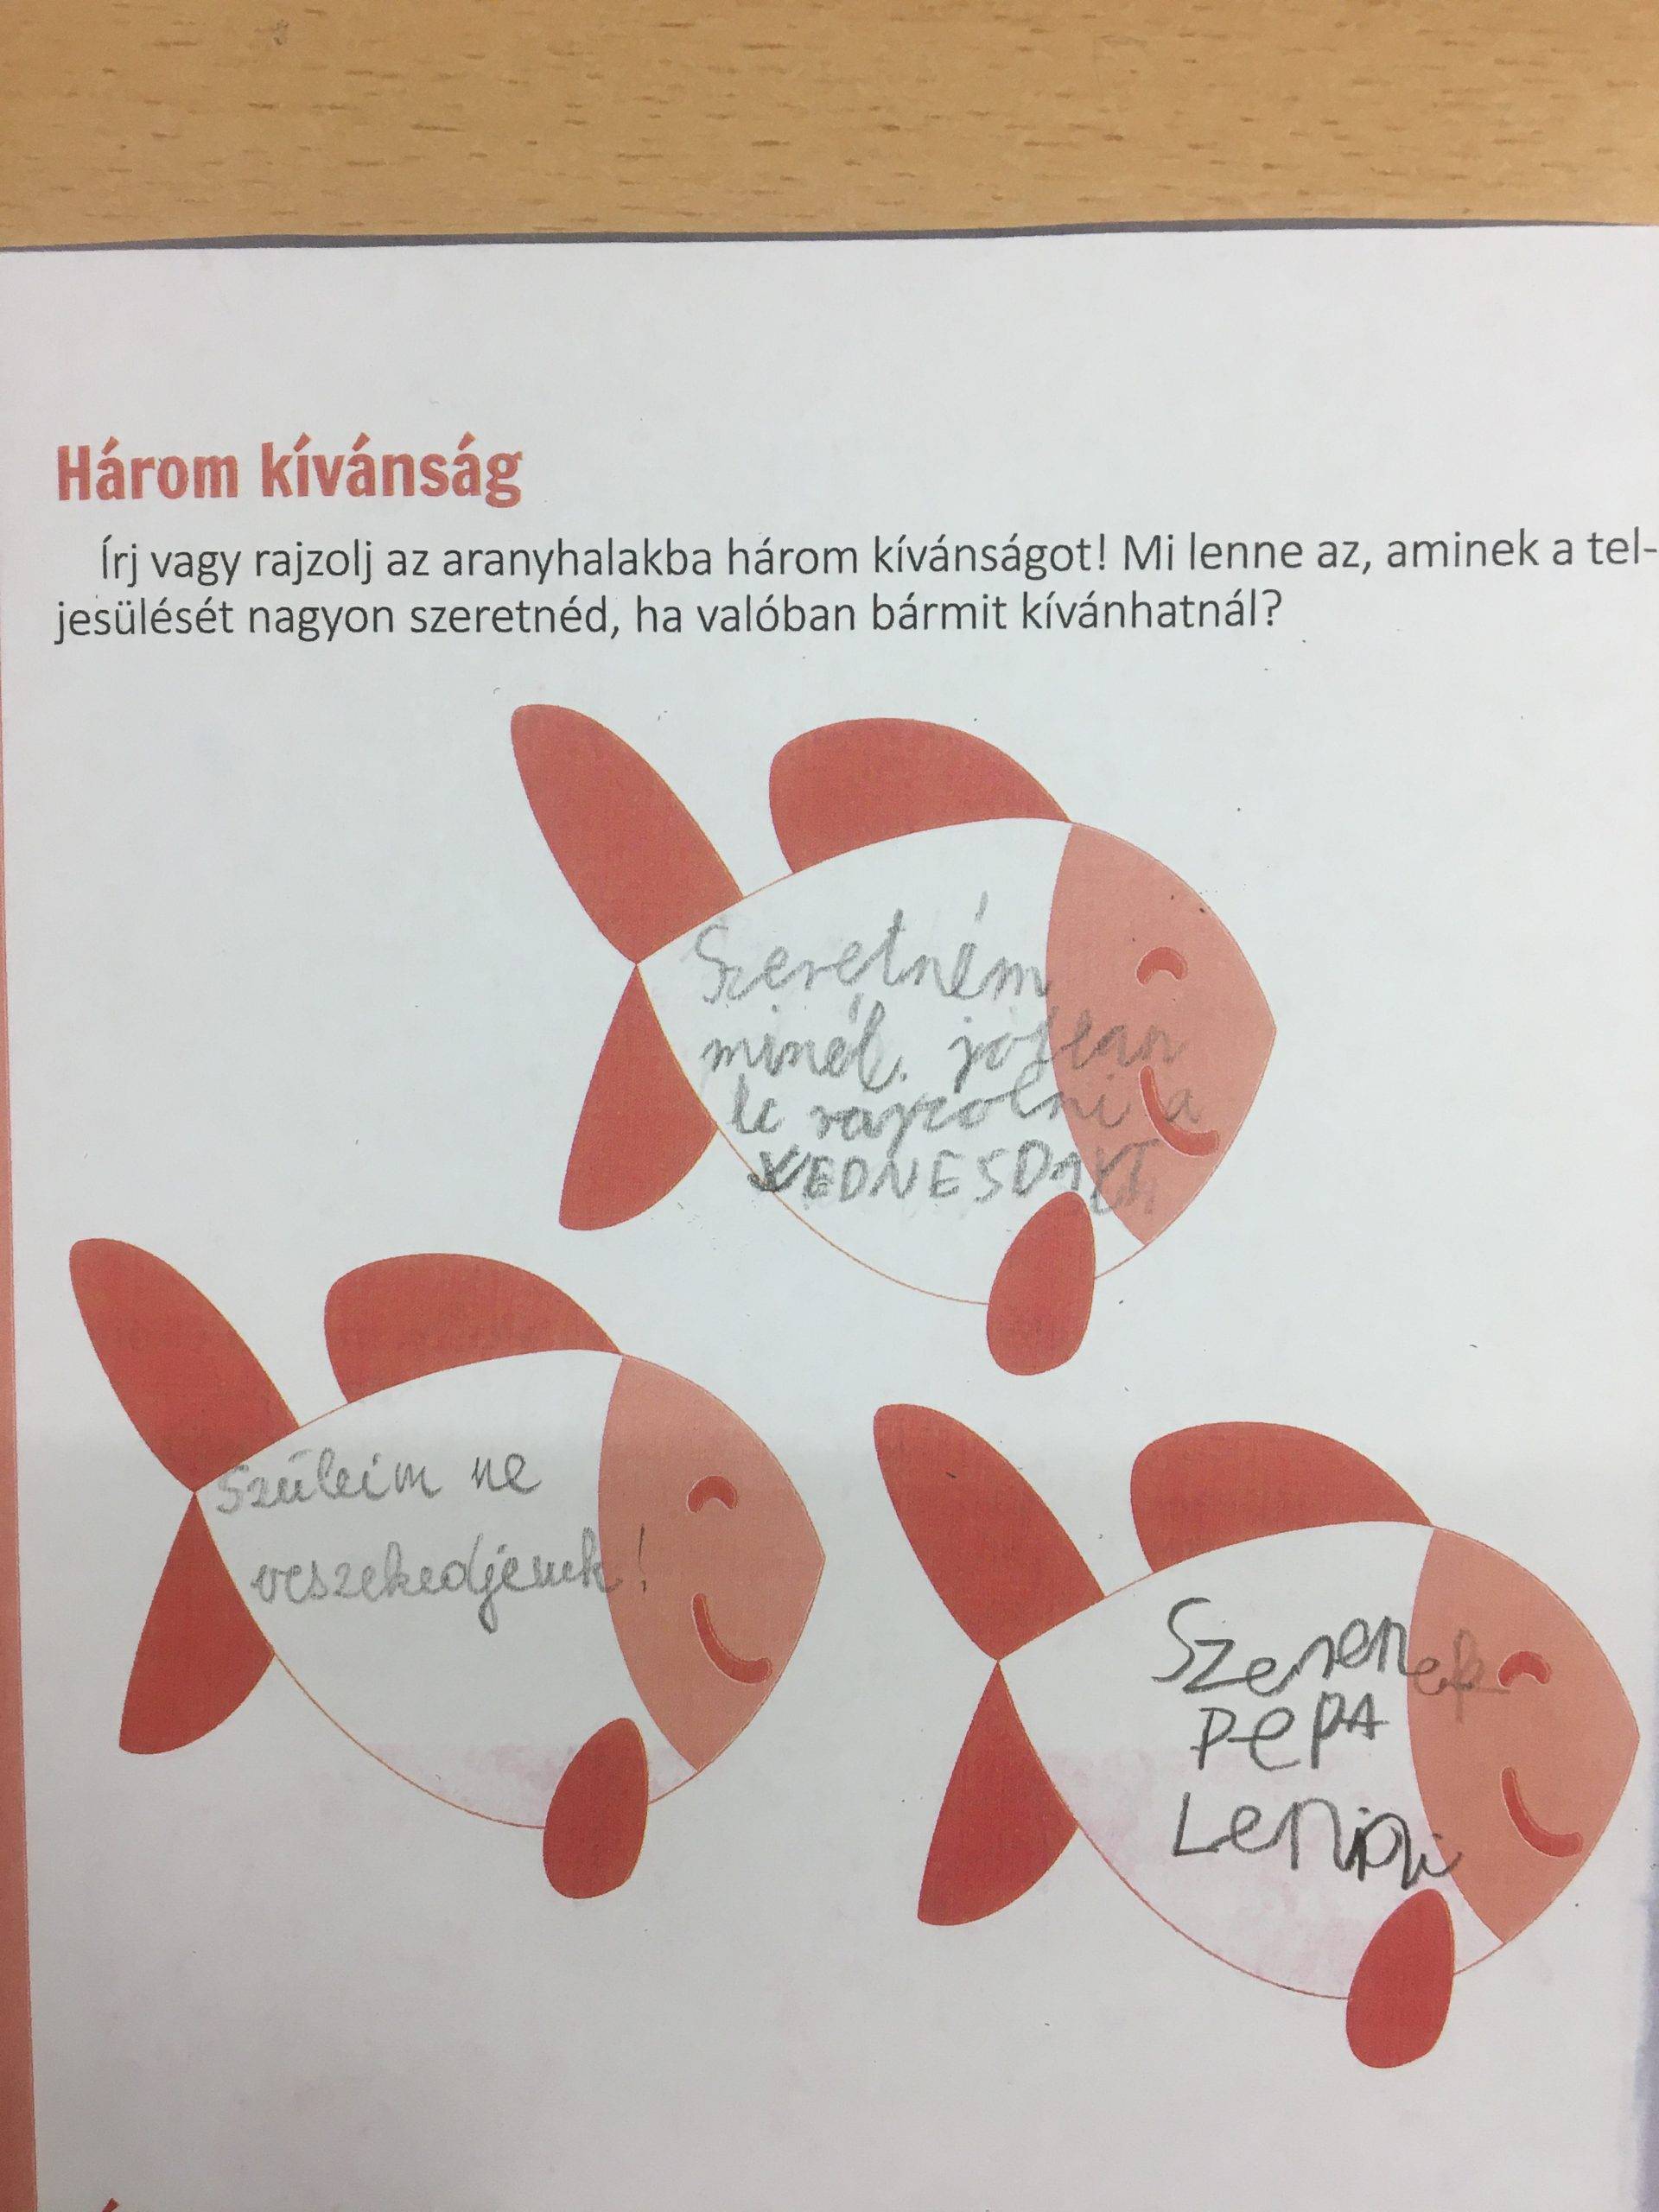 Három kívánság
Írj vagy rajzolj az aranyhalakba három kívánságot! Mi lenne az, aminek a tel-
jesülését nagyon szeretnéd, ha valóban bármit kívánhatnál?
Szeretném
minél jobban
le rajzolni a
WEDNESDAYT
Szüleim ne
veszekedjenek!
Szerenek
PePA
Lenni